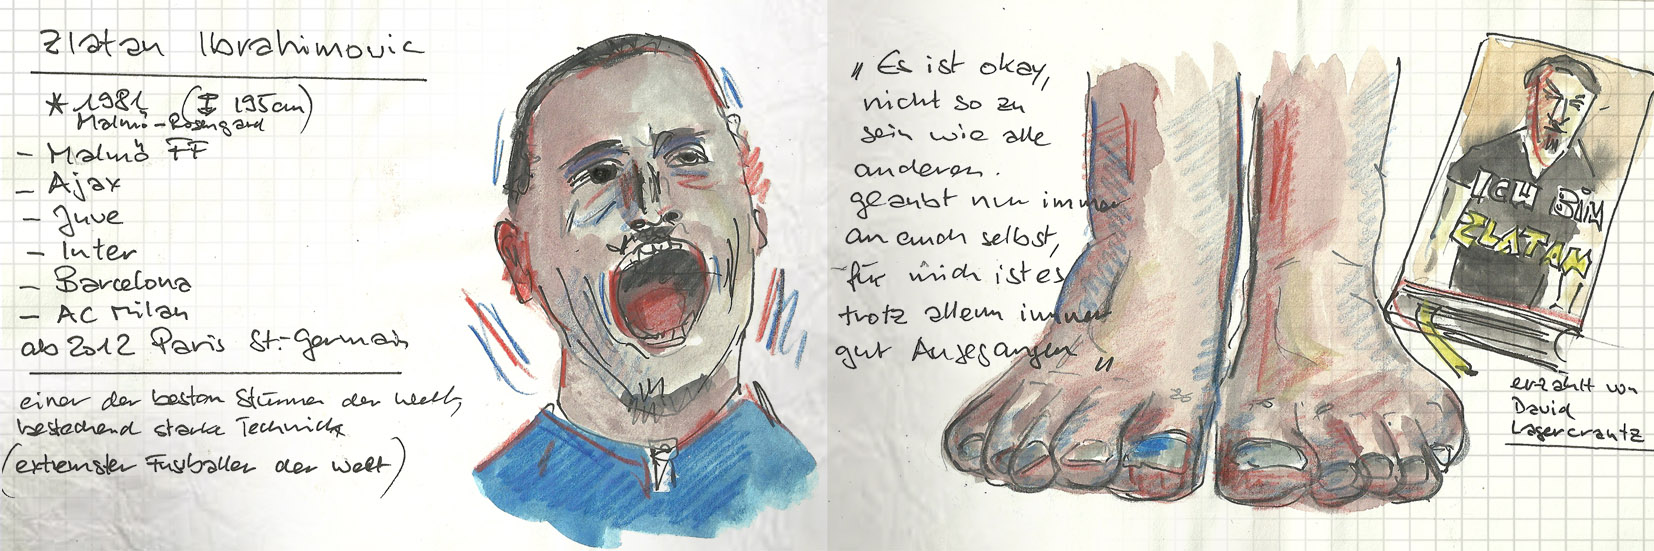 Zlatan Ibrahimovic
* 1981 (I 195cm)
Malmö-Rosengard
- Malmö FF
- Ajax
- Juve
- Inter
- Barcelona
- AC Milan
ab 2012 Paris St.-Germain
einer der besten Stürmer der Welt,
bestechend starke Technick
(extremster Fußballer der Welt)
„Es ist okay,
nicht so zu
sein wie alle
anderen.
glaubt nur immer
an euch selbst,
für mich ist es
trotz allem immer
gut Ausgegangen"
ICH BIN
ZLATAN
erzählt von
David
Lagercrantz